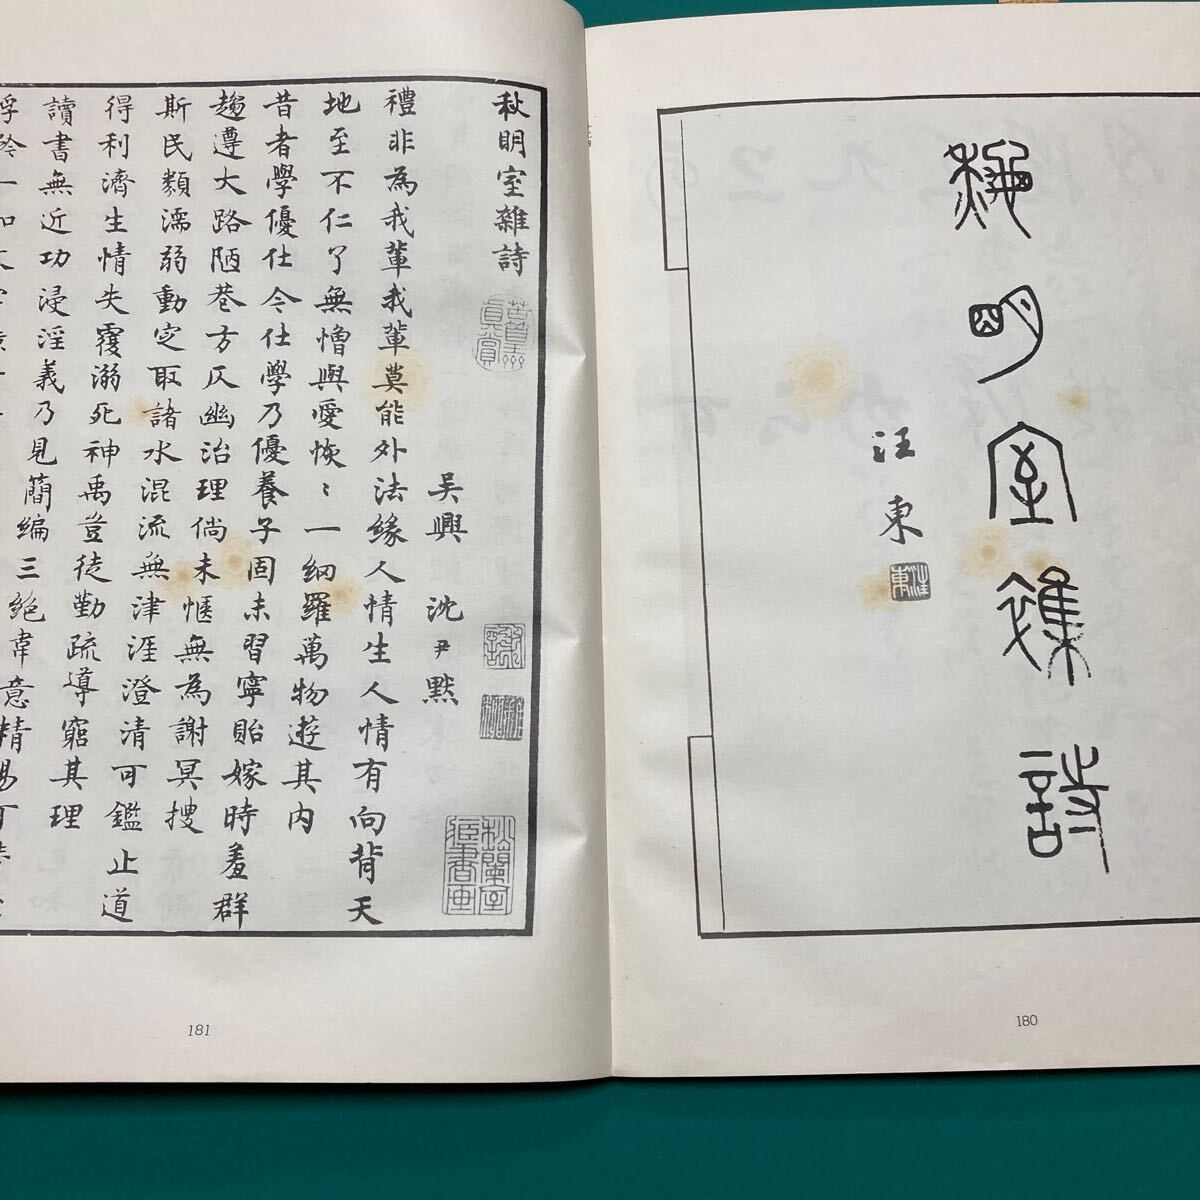 龝朙室雜詩
汪東
汪東
秋明室雜詩
吳興 沈尹默
禮非為我輩我輩莫能外法緣人情生人情有向背天
地至不仁了無憎與愛恢〻一網羅萬物遊其内
昔者學優仕今仕學乃優養子固未習寧貽嫁時羞群
趨遵大路陋巷方仄幽治理倘未愜無為謝冥搜
斯民類濡弱動定取諸水混流無津涯澄清可鑑止道
得利濟生情失覆溺死神禹豈徒勤疏導窮其理
讀書無近功浸淫義乃見簡編三絕韋意精
181
180